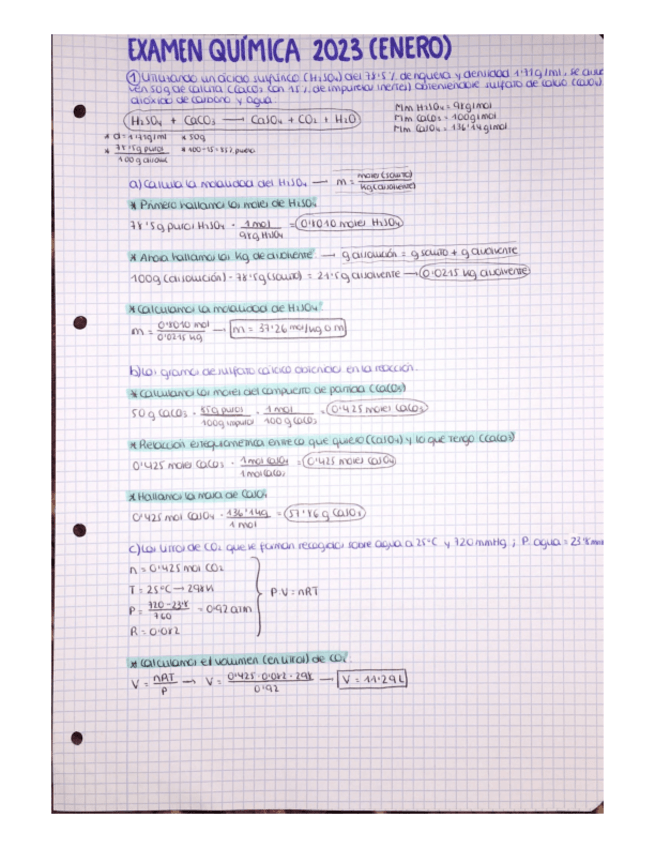 EXAMEN QUÍMICA 2023 (ENERO)
① Utilizando un ácido sulfúrico (H₂SO₄) del 78'5% de riqueza y densidad 1'71g/ml, se
50g de caliza (CaCO₃ con 15% de impurezas inertes) obteniéndose sulfato de calcio (CaSO₄)
dióxido de carbono y agua.
H₂SO₄ + CaCO₃ → CaSO₄ + CO₂ + H₂O
Mm H₂SO₄ = 98g/mol
Mm CaCO₃ = 100g/mol
Mm CaSO₄ = 136'14g/mol
* 50g
* 78'5g puros / 100g
* 100-15 = 85% pureza
a) Calcula la molalidad del H₂SO₄ → m = moles (soluto) / kg (disolvente)
* Primero hallamos los moles de H₂SO₄
78'5g puros H₂SO₄ · 1 mol / 98g H₂SO₄ = 0'8010 moles H₂SO₄
* Ahora hallamos los kg de disolvente. → g disolución = g soluto + g disolvente
100g (disolución) - 78'5g (soluto) = 21'5g disolvente → 0'0215 kg disolvente
* Calculamos la molalidad de H₂SO₄:
m = 0'8010 mol / 0'0215 kg → m = 37'26 mol/kg o m
b) Los gramos de sulfato cálcico obtenidos en la reacción.
* Calculamos los moles del compuesto de partida (CaCO₃)
50g CaCO₃ · 85g puros / 100g impuros · 1 mol / 100g CaCO₃ = 0'425 moles CaCO₃
* Relación estequiométrica entre lo que quiero (CaSO₄) y lo que tengo (CaCO₃)
0'425 moles CaCO₃ · 1 mol CaSO₄ / 1 mol CaCO₃ = 0'425 moles CaSO₄
* Hallamos la masa de CaSO₄
0'425 mol CaSO₄ · 136'14g / 1 mol = 57'86 g CaSO₄
c) Los litros de CO₂ que se forman recogidos sobre agua a 25°C y 720mmHg ; P. agua = 23'8
n = 0'425 mol CO₂
T = 25°C → 298K
P = 720-23'8 / 760 = 0'92 atm
R = 0'082
P·V = nRT
* Calculamos el volumen (en litros) de CO₂
V = nRT / P → V = 0'425 · 0'082 · 298 / 0'92 → V = 11'29L